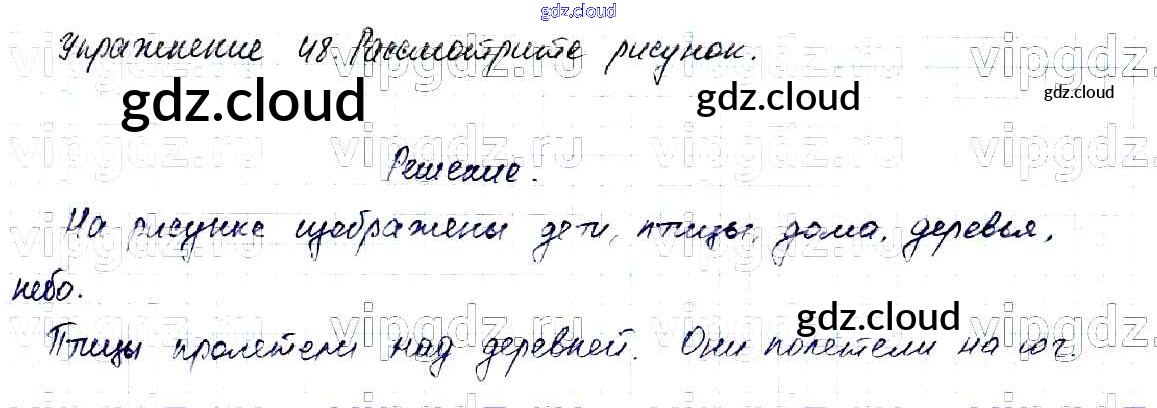 gdz.cloud
Упражнение 48. Рассмотрите рисунок.
vipgdz.ru vipgdz
gdz.cloud gdz.cloud gdz.cloud
vipgdz.ru vipgdz.ru vipgdz.ru vipgdz
Решение.
На рисунке изображены дети, птицы, дома, деревья,
небо.
gdz.cloud
Птицы пролетели над деревней. Они полетели на юг.